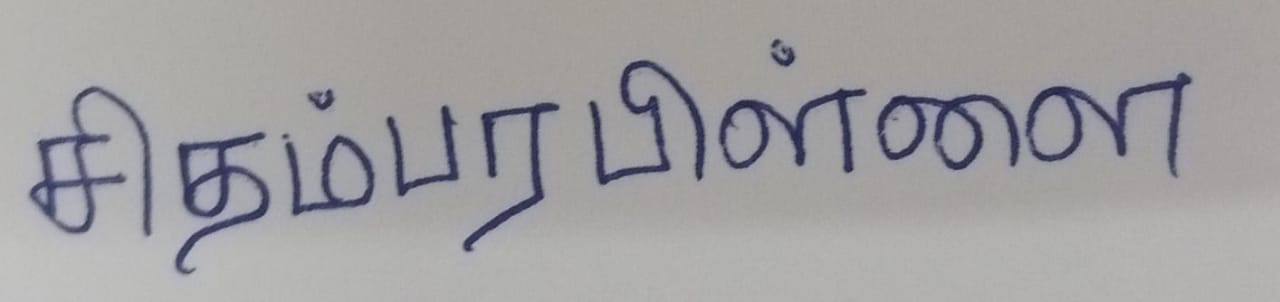 சிதம்பர பிள்ளை